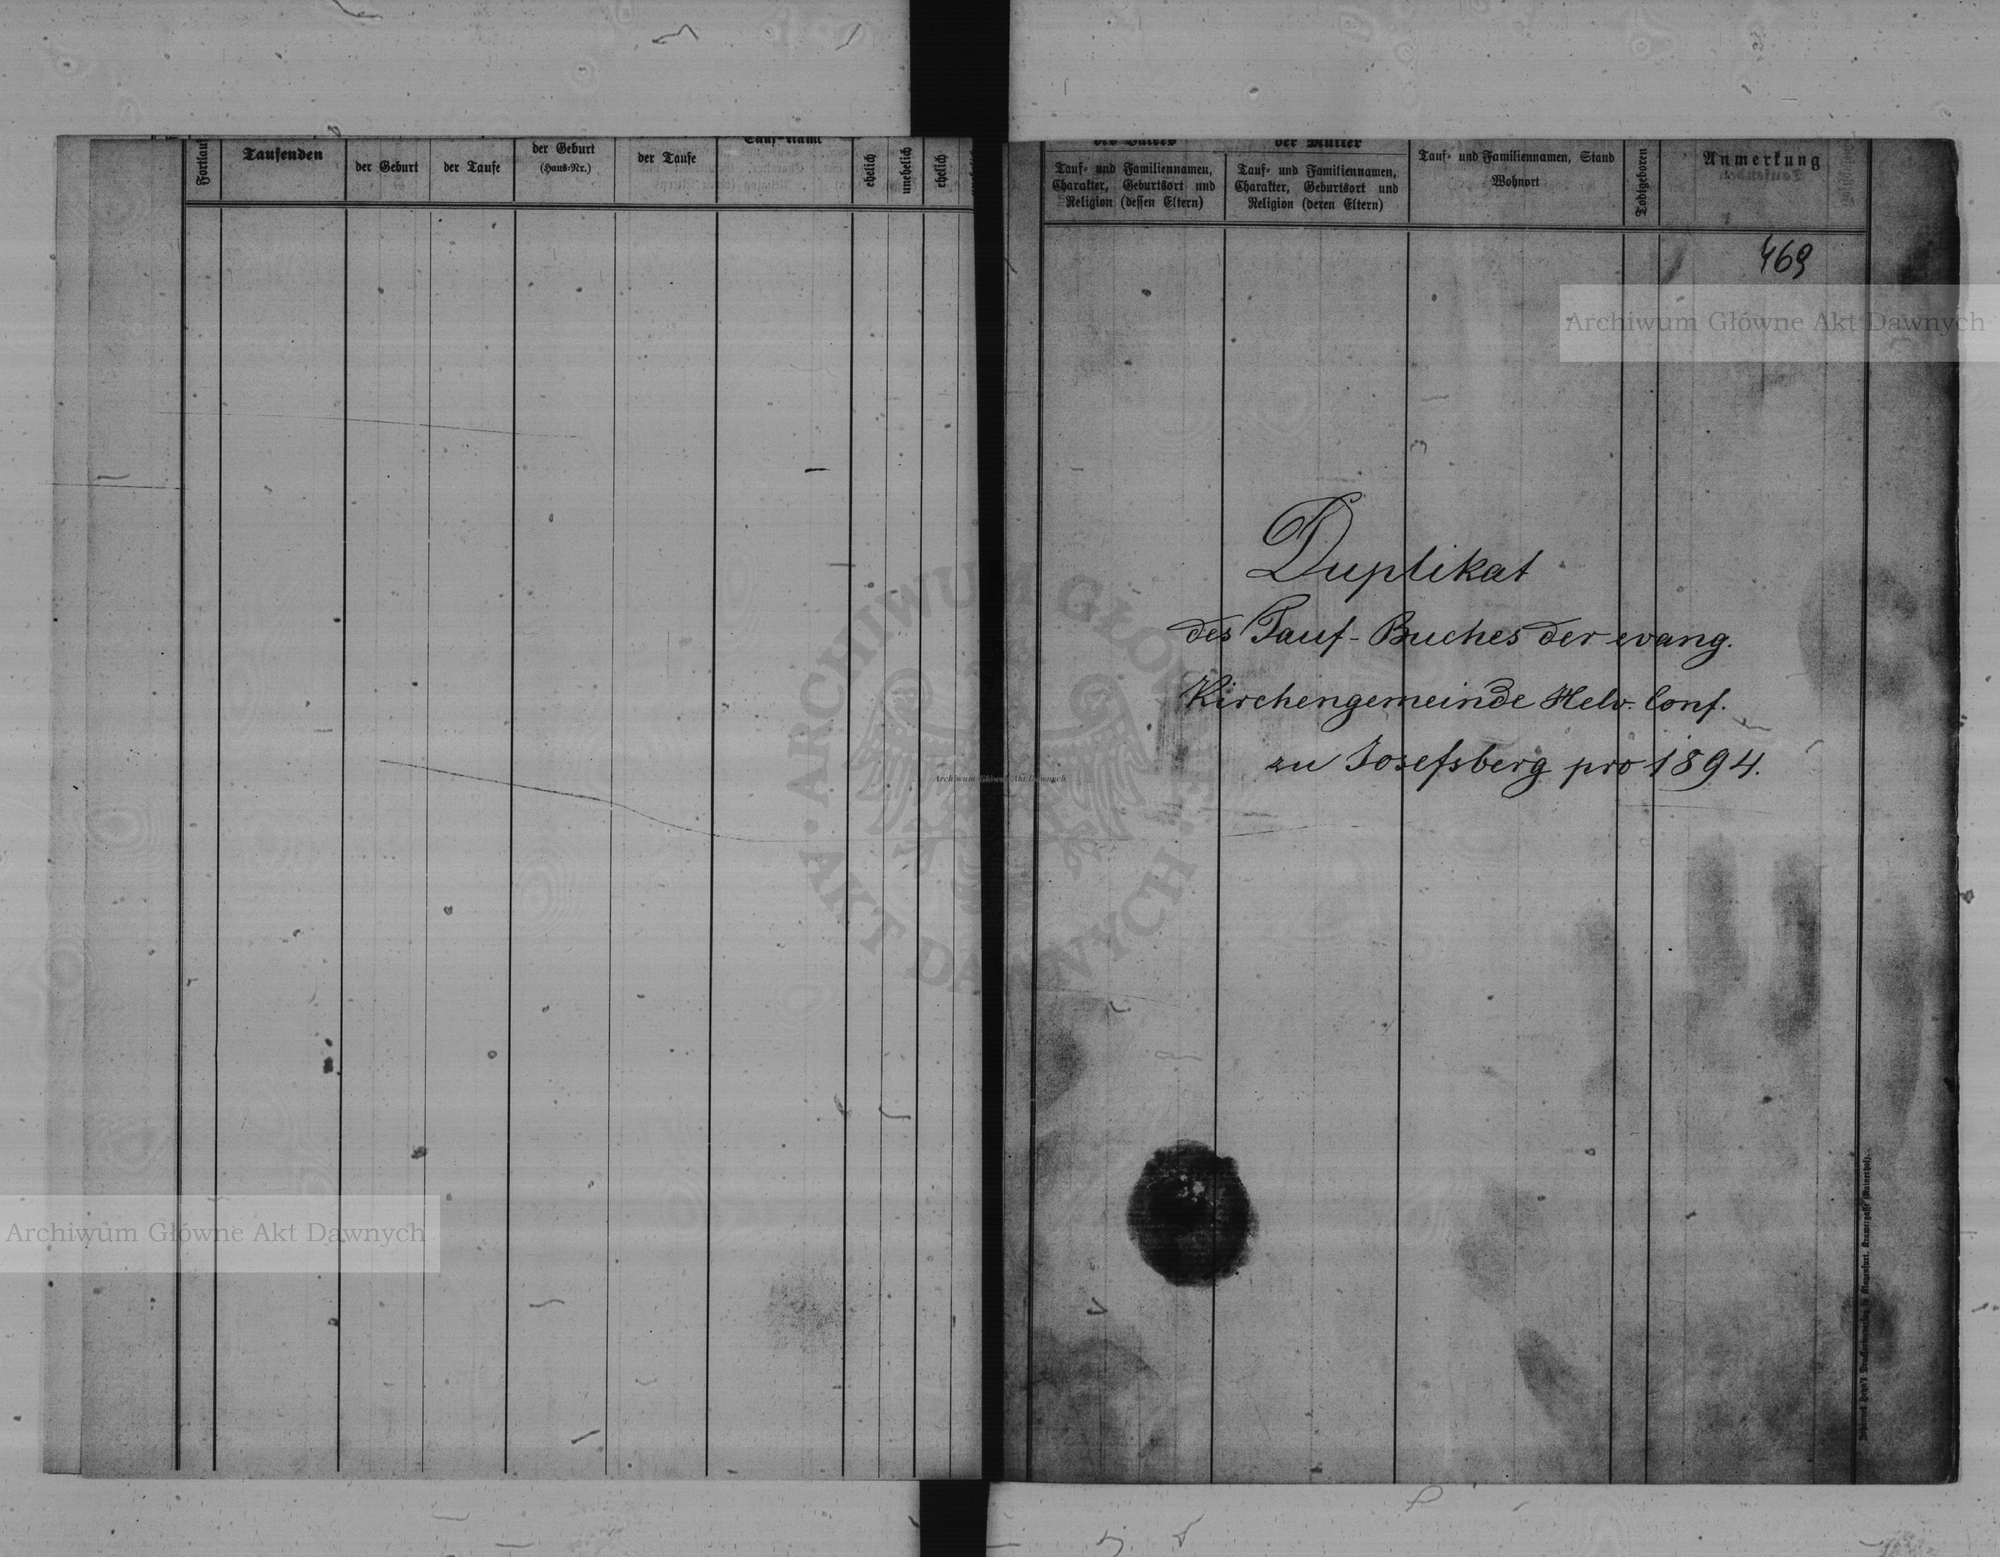 Taufenden
der Geburt
der Taufe
der Geburt
(Haus-Nr.)
der Taufe
Tauf-Name
ehelich
unehelich
ehelich
des Vaters
Tauf- und Familiennamen,
Charakter, Geburtsort und
Religion (dessen Eltern)
der Mutter
Tauf- und Familiennamen,
Charakter, Geburtsort und
Religion (deren Eltern)
Tauf- und Familiennamen, Stand
Wohnort
Todtgeboren
Anmerkung
469
Archiwum Główne Akt Dawnych
Duplikat
des Tauf-Buches der evang.
Kirchengemeinde Helv. Conf.
zu Josefsberg pro 1894.
ARCHIWUM GŁÓWNE
AKT DAWNYCH
Archiwum Główne Akt Dawnych
Archiwum Główne Akt Dawnych